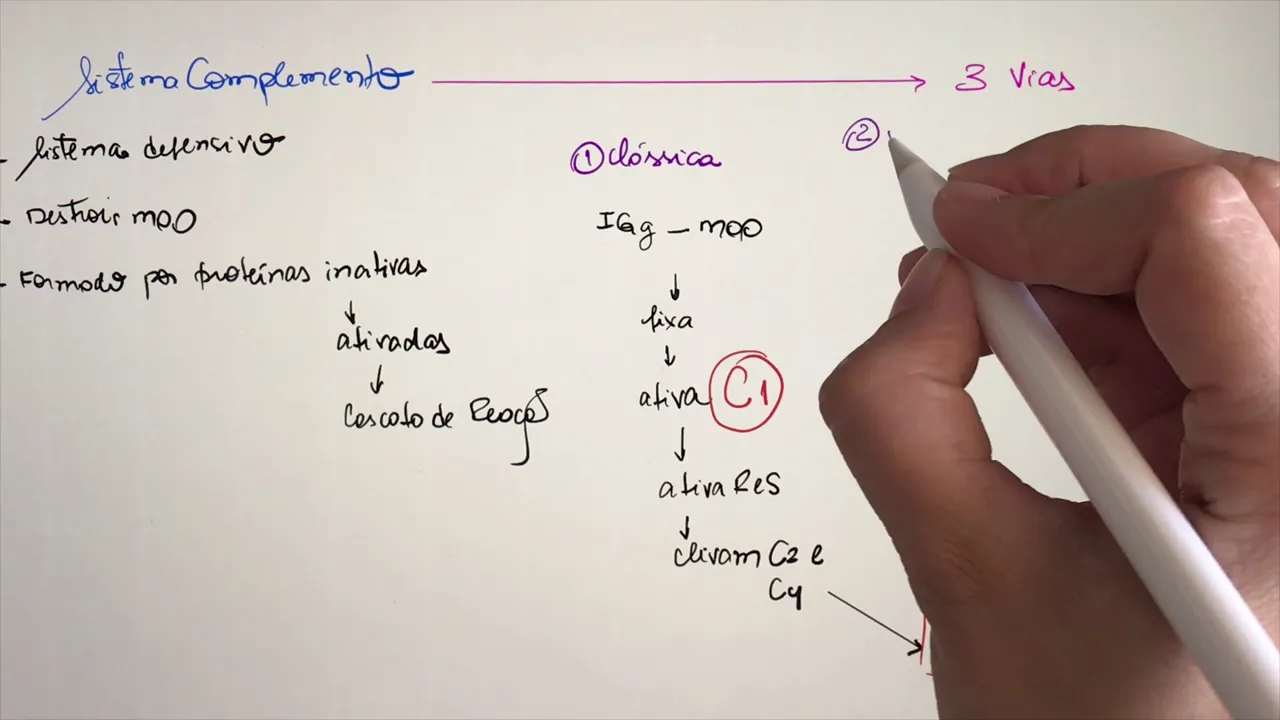 Sistema Complemento → 3 Vias
- Sistema defensivo
- Destroir MOO
- Formado por proteínas inativas
↓
ativadas
↓
Cascata de Reações
① Clássica
IGg - MOO
↓
fixa
↓
ativa C1
↓
ativa R e S
↓
clivam C2 e
C4
②